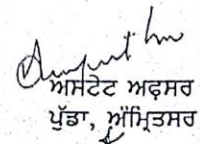 ਅਸਟੇਟ ਅਫ਼ਸਰ
ਪੁੱਡਾ, ਅੰਮ੍ਰਿਤਸਰ